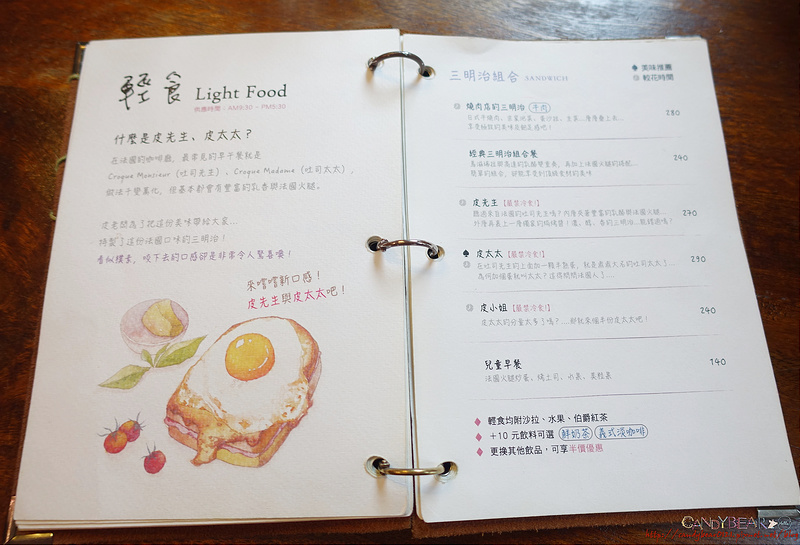 輕食 Light Food
供應時間：AM9:30 ~ PM5:30
什麼是皮先生、皮太太？
在法國的咖啡廳，最常見的早午餐就是
Croque Monsieur（吐司先生）、Croque Madame（吐司太太），
做法千變萬化，但基本都會有豐富的乳香與法國火腿。
皮老闆為了把這份美味帶給大家...
特製了這份法國口味的三明治！
看似樸素，咬下去的口感卻是非常令人驚喜噢！
來嚐嚐新口感！
皮先生與皮太太吧！
三明治組合 SANDWICH
♠ 美味推薦
較花時間
燒肉店的三明治 牛肉 280
經典三明治組合餐 240
簡單的組合，卻能享受到頂級食材的美味
皮先生【嚴禁冷食!】 270
♠ 皮太太【嚴禁冷食!】 290
皮小姐【嚴禁冷食!】 240
皮太太的分量太多了嗎？...那就來個半份皮太太吧！
兒童早餐 140
法國火腿炒蛋、烤土司、水果、美粒果
◆ 輕食均附沙拉、水果、伯爵紅茶
◆ +10 元飲料可選 鮮奶茶 義式淡咖啡
◆ 更換其他飲品，可享半價優惠
CANDYBEAR